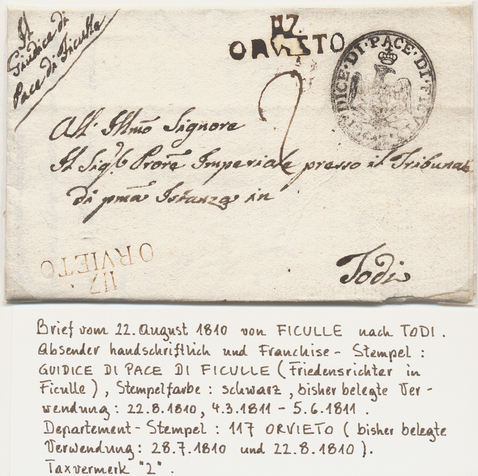 Il
Giudice di
Pace di Ficulle
117
ORVIETO
GIUDICE·DI·PACE·DI·FICU
All' Illmo Signore
Il Sigre Prore Imperiale presso il Tribunale
di pma Istanza in
2
Todi
117
ORVIETO
Brief vom 22. August 1810 von FICULLE nach TODI.
Absender handschriftlich und Franchise-Stempel:
GUIDICE DI PACE DI FICULLE (Friedensrichter in
Ficulle), Stempelfarbe: schwarz, bisher belegte Ver-
wendung: 22.8.1810, 4.3.1811 - 5.6.1811.
Departement-Stempel: 117 ORVIETO (bisher belegte
Verwendung: 28.7.1810 und 22.8.1810).
Taxvermerk "2".